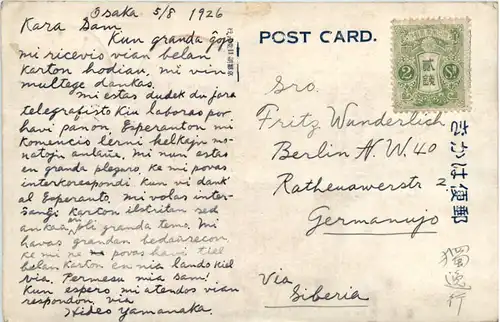 Osaka 5/8 1926
Kara Sam.
Kun granda ĝojo
mi ricevis vian belan
karton hodiaŭ, mi vin
multege dankas.
Mi estas dudek du jara
telegrafisto kiu laboras por
havi panon. Esperanton mi
komencis lerni kelkaju mo-
natoju antaŭe. Mi nun estas
en granda plezuro, ke mi povas
interkorespondi kun vi dank'
al Esperanto. Mi volas inter-
ŝanĝi karton ilustritan sed
ankaŭ en pli granda temo. Mi
havas grandan bedaŭrecon
ke mi ne povas havi tiel
belan karton en nia lando kiel
via. Permesu mia Sam!
Kun espero mi atendos vian
respondon, via
Hideo Yamanaka
POST CARD.
Sro.
Fritz Wunderlich
Berlin N.W. 40
Rathenowerstr 2
Germanujo
Via
Siberia
獨逸行
きかは便郵
貳錢
2 Sn